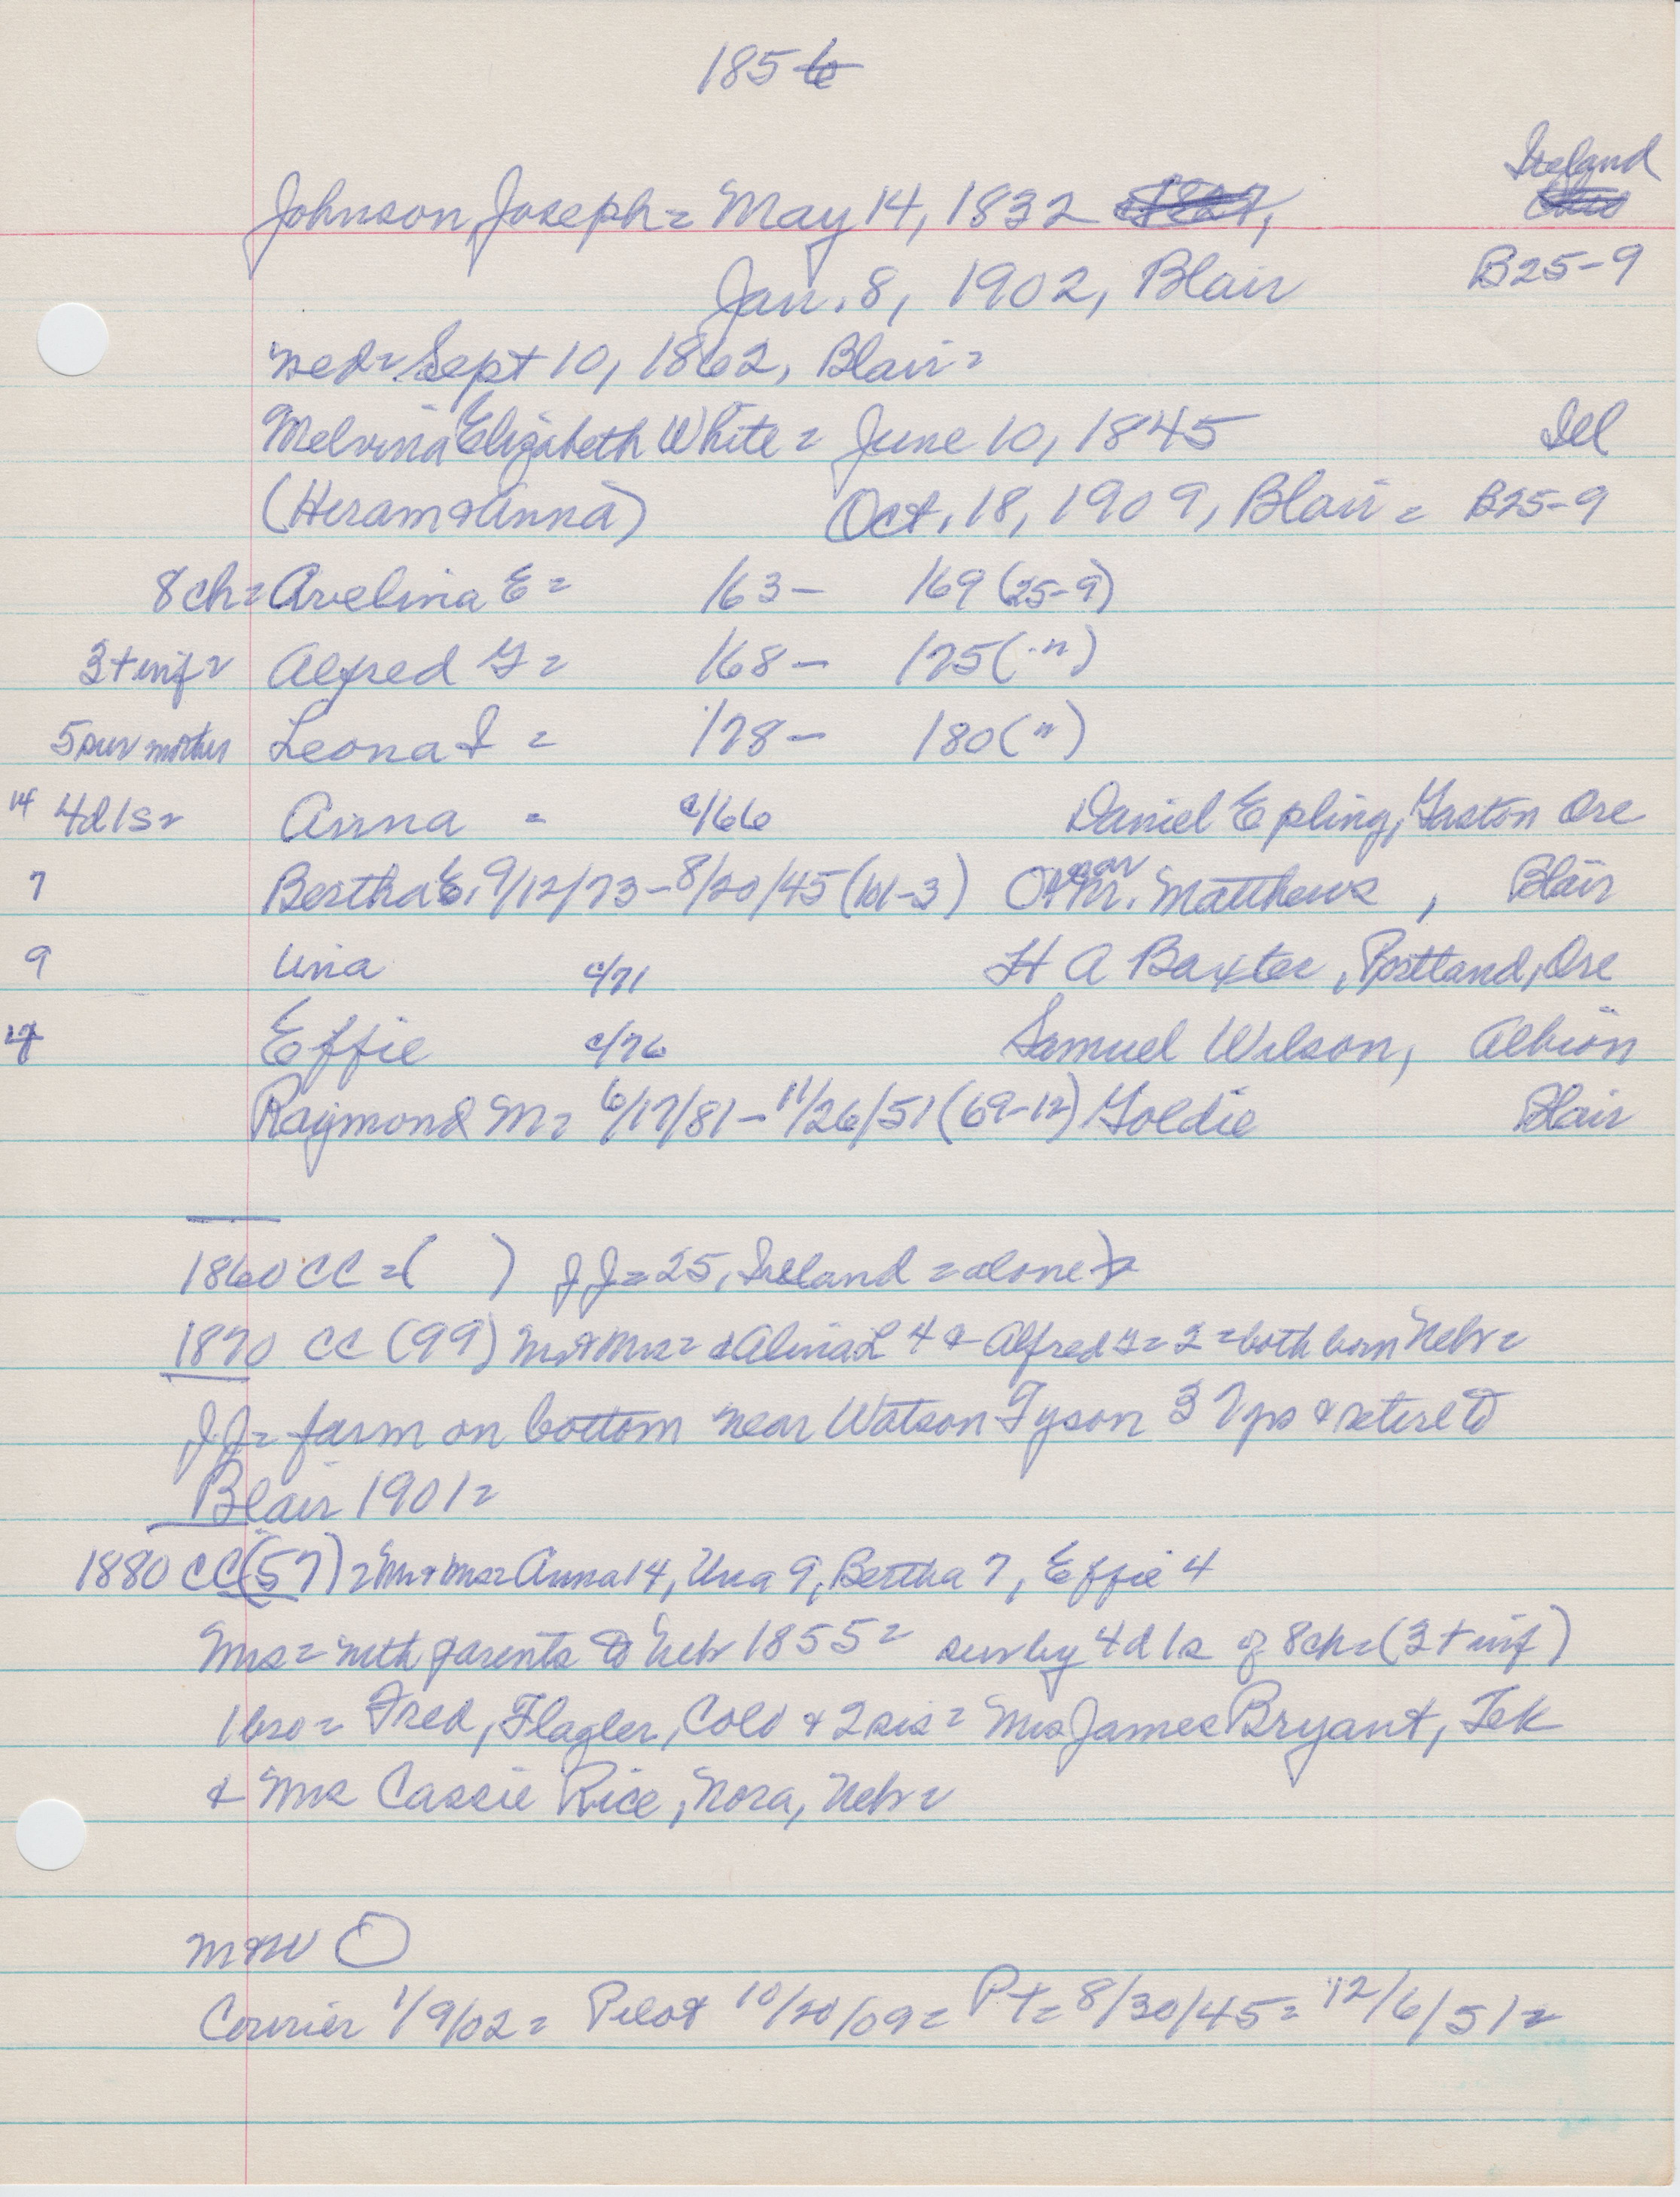 1856
Ireland
Johnson, Joseph = May 14, 1832 1827, Ohio
Jan. 8, 1902, Blair B25-9
wed = Sept 10, 1862, Blair =
Melvina Elizabeth White = June 10, 1845 Del
(Hiram & Anna) Oct. 18, 1909, Blair = B25-9
8 ch = Avelina E = '63 - '69 (25-9)
3 + inf = Alfred G = '68 - '75 ( " )
5 sur mother Leona I = '78 - '80 ( " )
14 4d 1s = Anna - c/66 Daniel Epling, Gaston Ore
7 Bertha E. 9/12/73 - 8/20/45 (101-3) Oscar Matthews, Blair
9 Una c/71 H A Baxter, Portland, Ore
4 Effie c/76 Samuel Wilson, Albion
Raymond M = 6/17/81 - 11/26/51 (69-12) Goldie Blair
1860 CC = ( ) JJ = 25, Ireland = alone =
1870 CC (99) Mr & Mrs = & Alina L 4 & Alfred G = 2 = both born Nebr =
J.J = farm on bottom near Watson Tyson 37 yrs & retire to
Blair 1901 =
1880 CC (57) = Mr & Mrs = Anna 14, Una 9, Bertha 7, Effie 4
Mrs = with parents to Nebr 1855 = sur by 4d 1s of 8 ch = (3 + inf)
1 bro = Fred, Flagler, Colo & 2 sis = Mrs James Bryant, Tek
& Mrs Cassie Rice, Nora, Nebr =
M & W O
Courier 1/9/02 = Pilot 10/20/09 = PT = 8/30/45 = 12/6/51 =